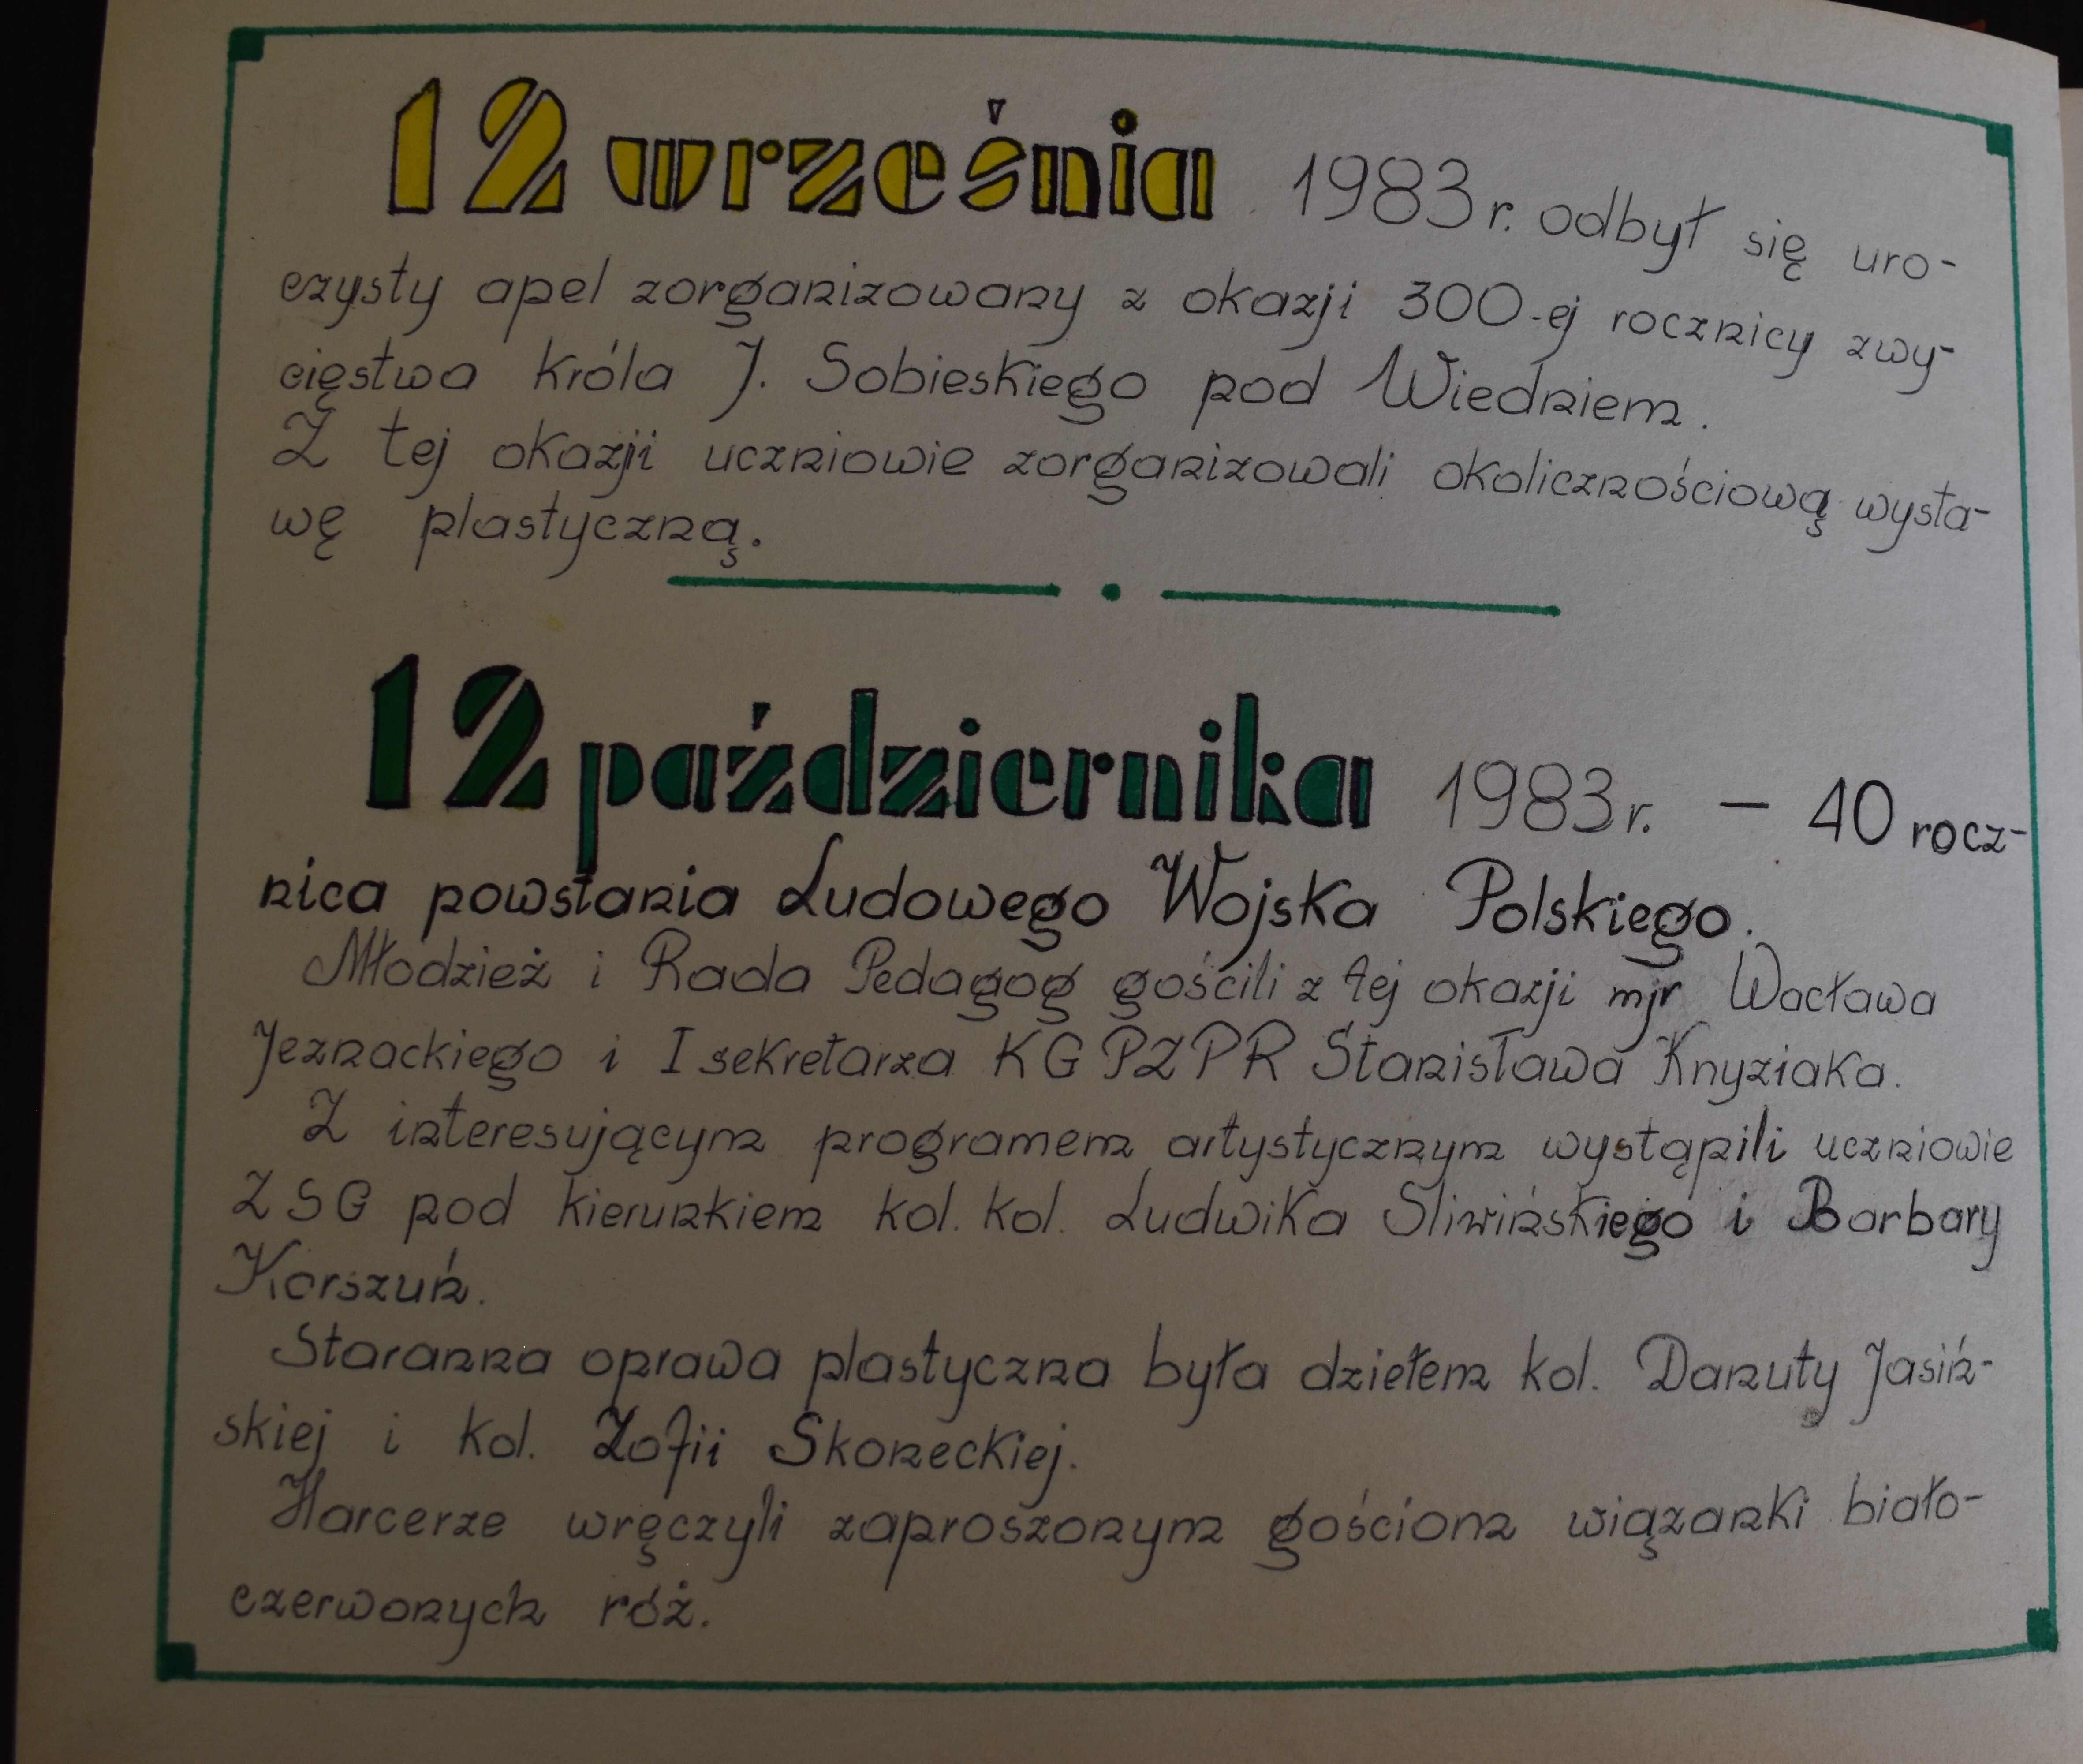 12 września 1983 r. odbył się uro-
czysty apel zorganizowany z okazji 300-ej rocznicy zwy-
cięstwa króla J. Sobieskiego pod Wiedniem.
Z tej okazji uczniowie zorganizowali okolicznościową wysta-
wę plastyczną.
12 października 1983 r. – 40 rocz-
nica powstania Ludowego Wojska Polskiego.
Młodzież i Rada Pedagog gościli z tej okazji mjr Wacława
Jeznackiego i I sekretarza KG PZPR Stanisława Knyziaka.
Z interesującym programem artystycznym wystąpili uczniowie
ZSG pod kierunkiem kol. kol. Ludwika Sliwińskiego i Barbary
Korszuń.
Staranna oprawa plastyczna była dziełem kol. Danuty Jasiń-
skiej i kol. Zofii Skoneckiej.
Harcerze wręczyli zaproszonym gościom wiązanki biało-
czerwonych róż.